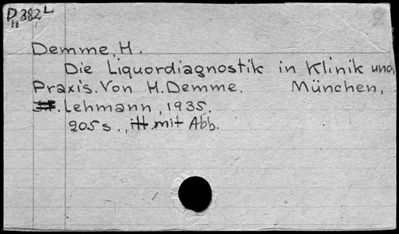 D 382 L
11
Demme, H.
Die Liquordiagnostik in Klinik und
Praxis. Von H. Demme. München,
Lehmann, 1935.
205 s., mit Abb.